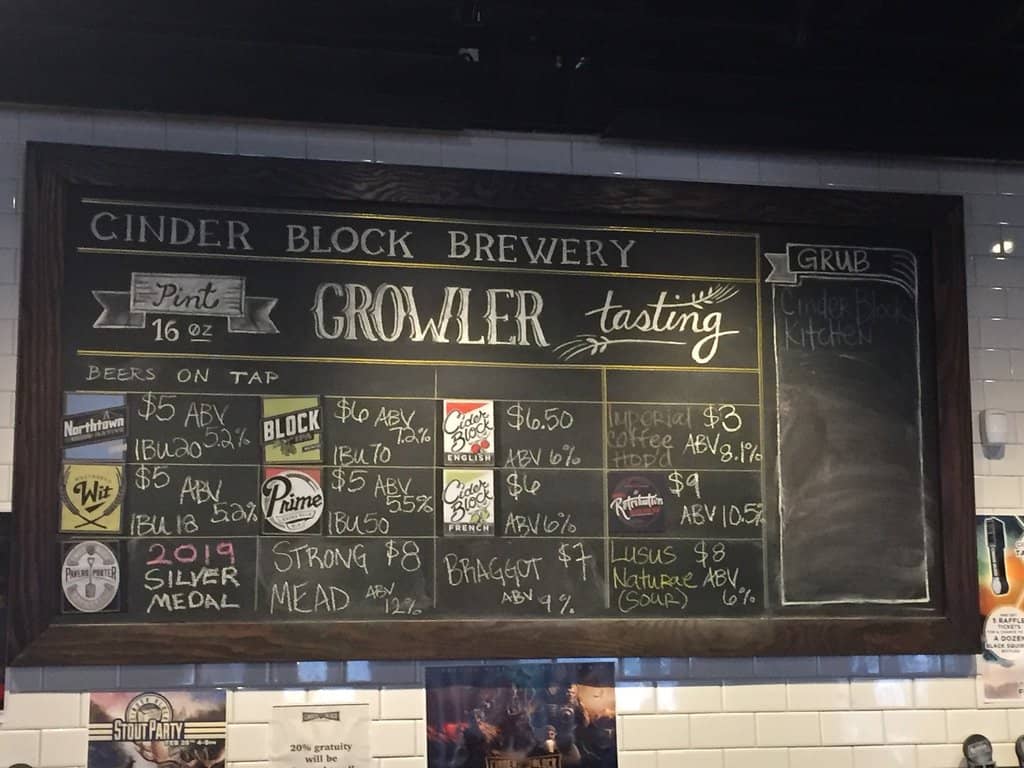 CINDER BLOCK BREWERY
Pint
16 OZ
GROWLER
tasting
BEERS ON TAP
Northtown
$5 ABV
5.2%
IBU 20
BLOCK
$6 ABV
7.2%
IBU 70
Cider
Block
ENGLISH
$6.50
ABV 6%
IMPERIAL
COFFEE
HOP'D
$3
ABV 8.1%
Wit
$5 ABV
5.2%
IBU 18
Prime
$5 ABV
5.5%
IBU 50
Cider
Block
FRENCH
$6
ABV 6%
$9
ABV 10.5%
PAVERS PORTER
2019
SILVER
MEDAL
STRONG $8
MEAD ABV
12%
BRAGGOT $7
ABV 9%
LUSUS $8
NATURAE ABV
(SOUR) 6%
GRUB
Cinder Block
KITCHEN
5 RAFFLE
TICKETS
A DOZEN
STOUT PARTY
20% gratuity
will be